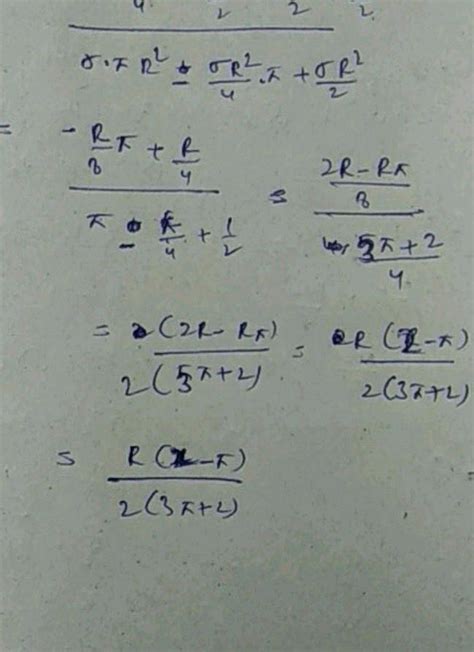 4. 2 2 2.
σ·π R² - σR²/4 ·π + σR²/2
= (-R/8 π + R/4)/(π - π/4 + 1/2) = ((2R-Rπ)/8)/((3π+2)/4)
= (2R-Rπ)/(2(3π+2)) = R(2-π)/(2(3π+2))
= R(2-π)/(2(3π+2))